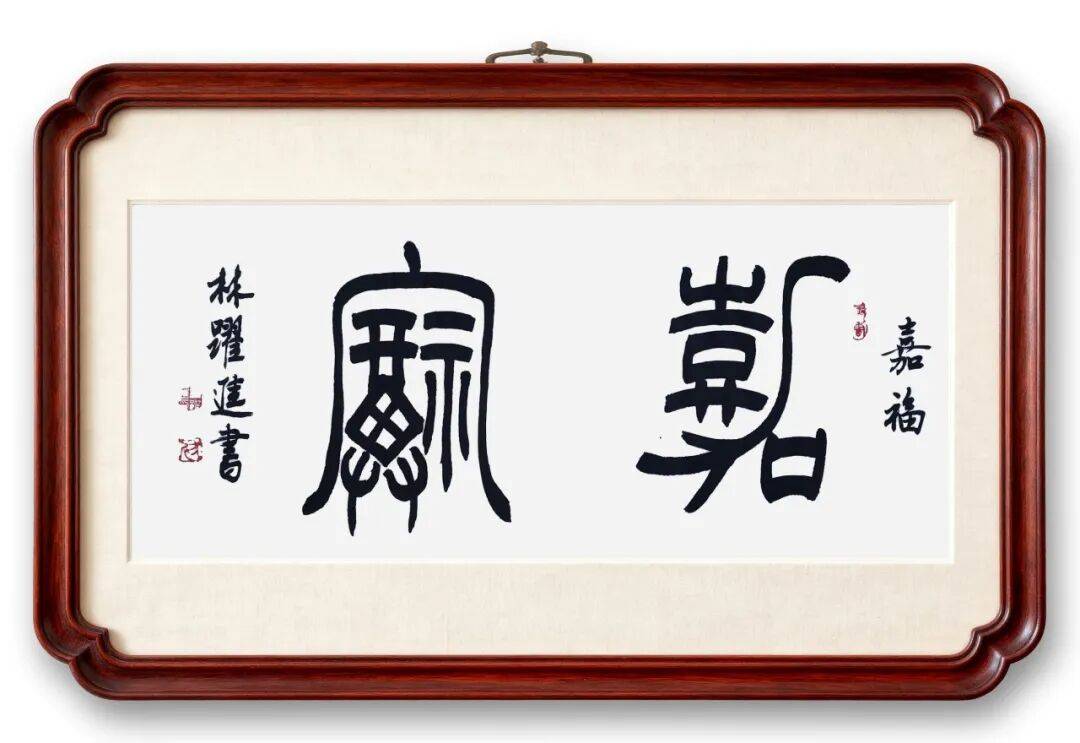 嘉福
嘉福
林躍進書